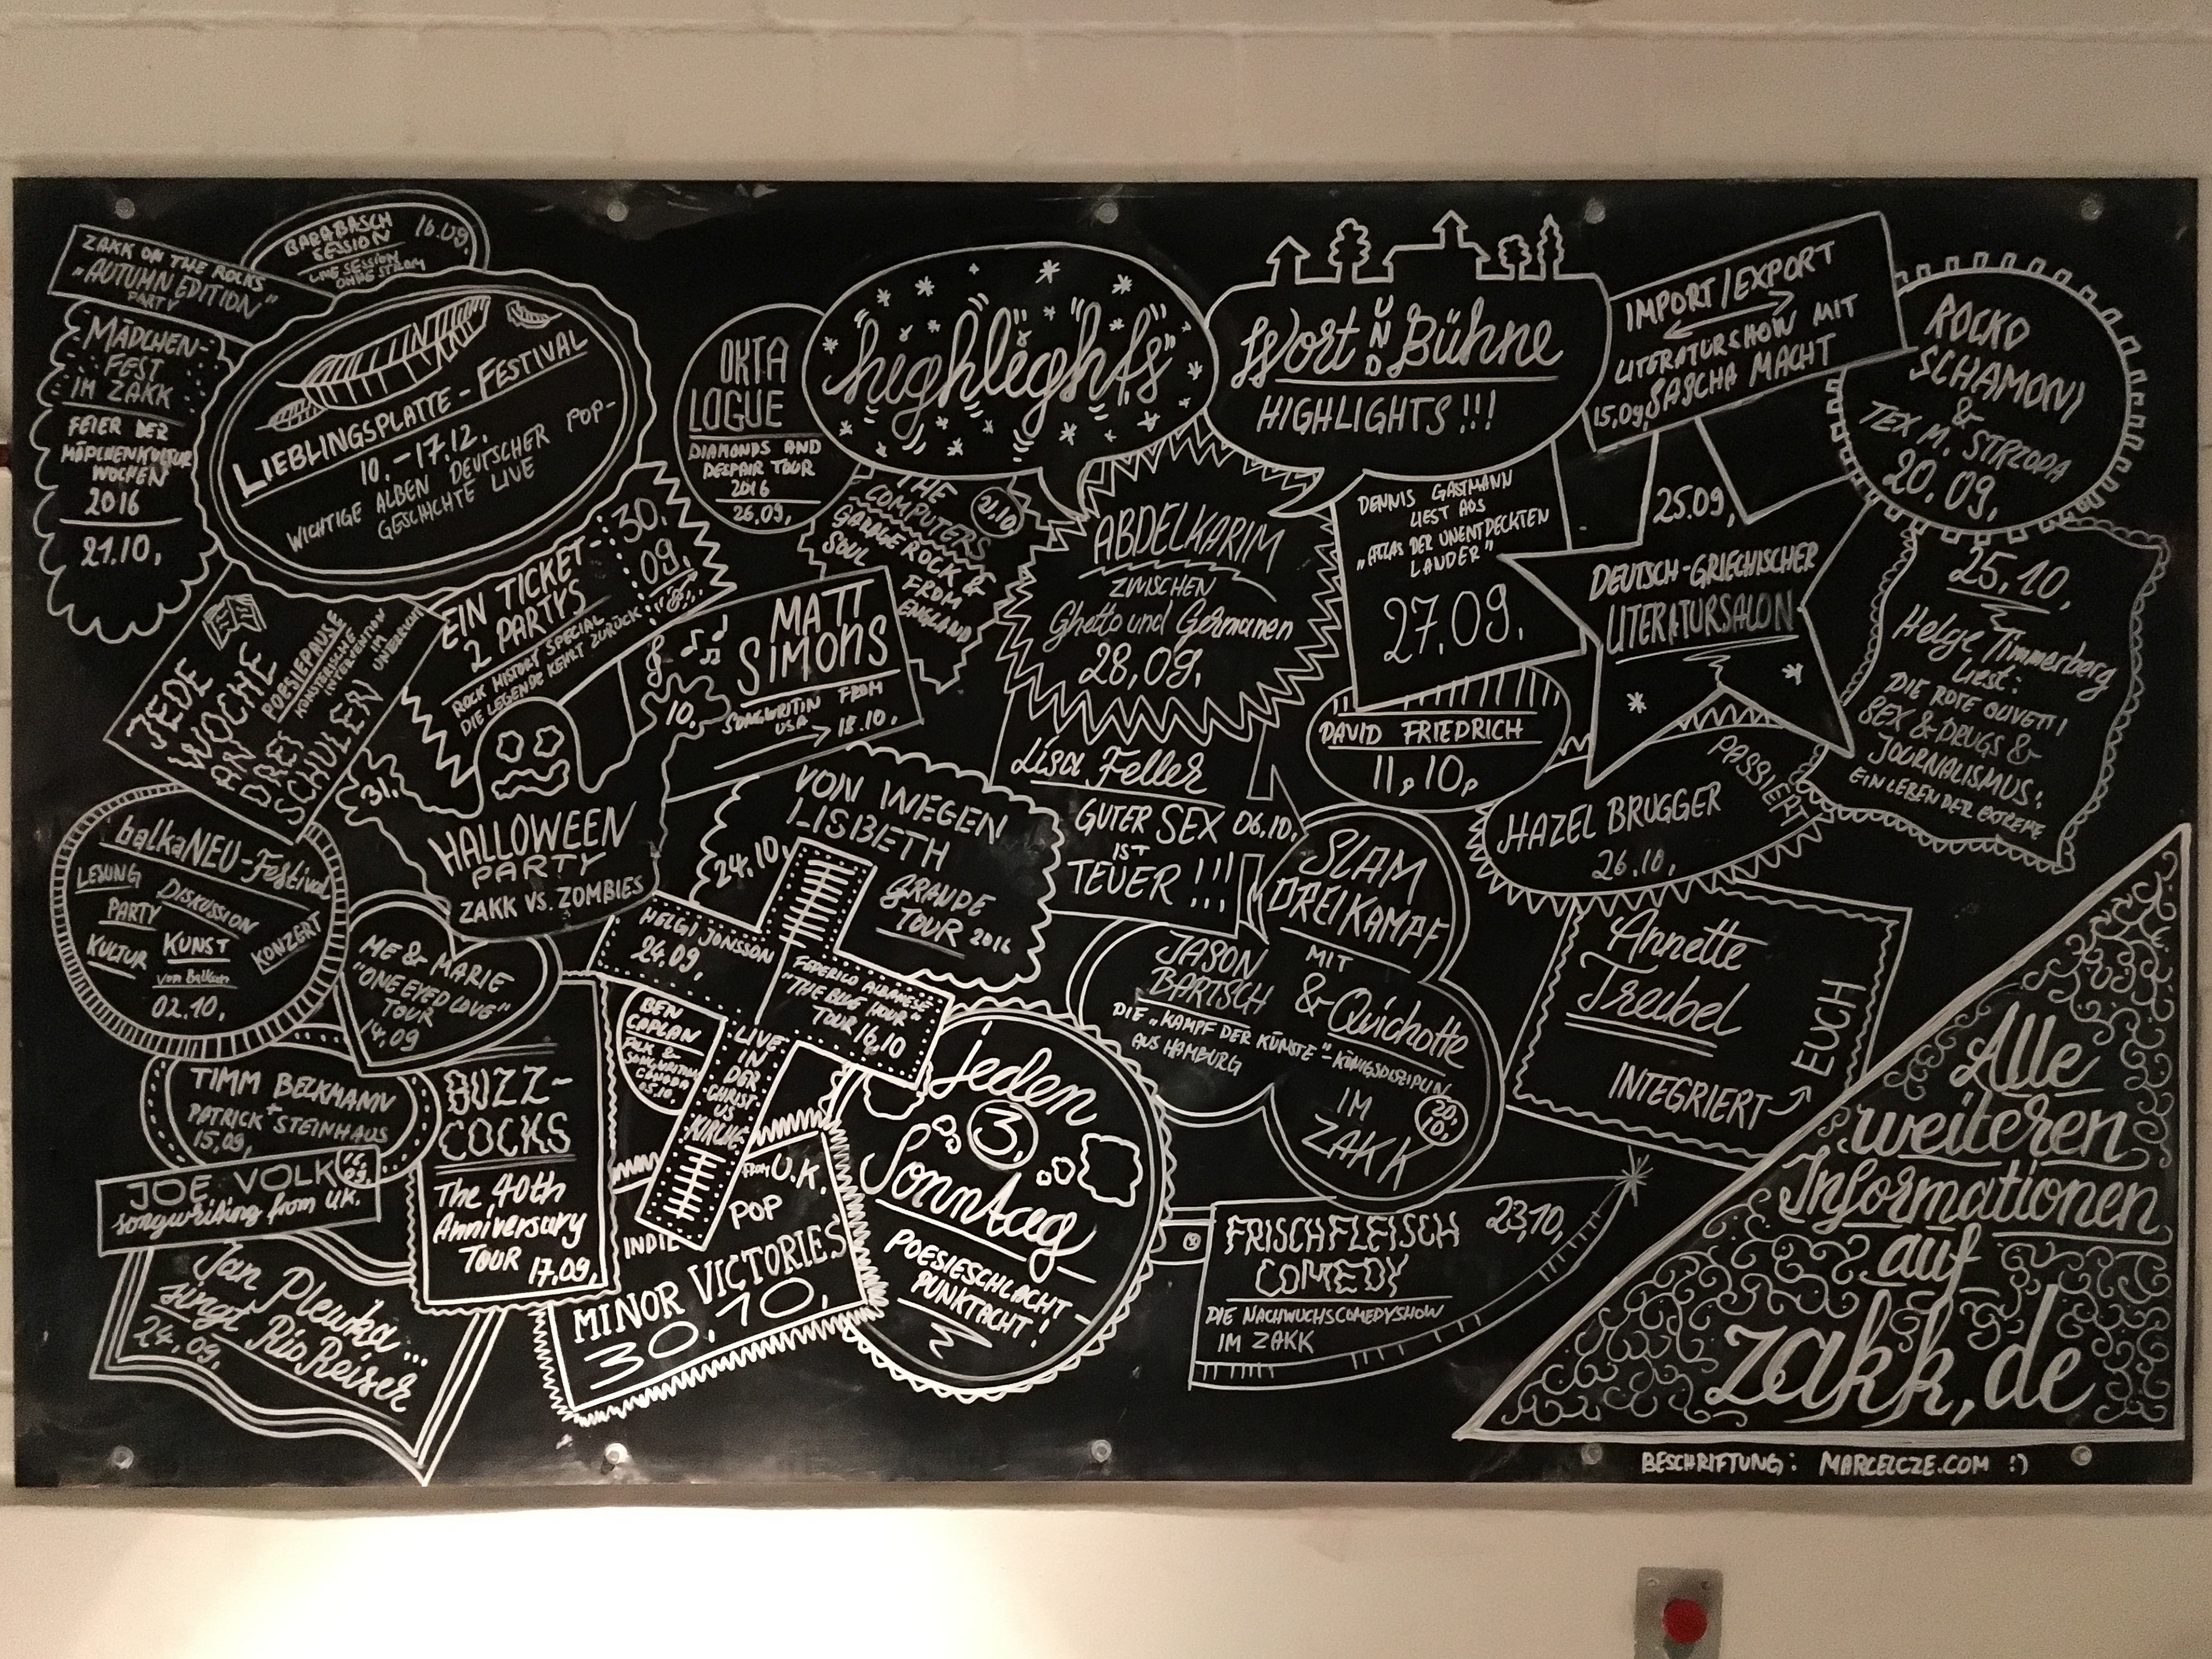 ZAKK ON THE ROCKS
"AUTUMN EDITION"
PARTY
BARABASCH
SESSION
LIVE SESSION
OHNE STROM
16.09.
MÄDCHEN-
FEST
IM ZAKK
FEIER DER
MÄDCHENKULTUR
WOCHEN
2016
21.10.
LIEBLINGSPLATTE-FESTIVAL
10.-17.12.
WICHTIGE ALBEN DEUTSCHER POP-
GESCHICHTE LIVE
OKTA
LOGUE
DIAMONDS AND
DESPAIR TOUR
2016
26.09.
highlights
Wort UND Bühne
HIGHLIGHTS!!!
IMPORT/EXPORT
LITERATURSHOW MIT
15.09. SASCHA MACHT
ROCKO
SCHAMONI
&
TEX M. STRZODA
20.09.
THE
COMPUTERS
21.10
GARAGE ROCK &
SOUL FROM
ENGLAND
ABDELKARIM
ZWISCHEN
Ghetto und Germanen
28.09.
DENNIS GASTMANN
LIEST AUS
"ATLAS DER UNENTDECKTEN
LÄNDER"
27.09.
25.09.
DEUTSCH-GRIECHISCHER
LITERATURSALON
25.10.
Helge Timmerberg
liest:
DIE ROTE OLIVETTI
SEX & DRUGS &
JOURNALISMUS:
EIN LEBEN DER EXTREME
EIN TICKET-
2 PARTYS
30.
09.
ROCK HISTORY SPECIAL
DIE LEGENDE KEHRT ZURÜCK
JEDE
WOCHE
AN DREI
SCHULEN
POESIEPAUSE
KÜNSTLERISCHE
INTERVENTION
IM
UNTERRICHT
MATT
SIMONS
SONGWRITIN FROM
USA
18.10.
31.
10.
HALLOWEEN
PARTY
ZAKK VS. ZOMBIES
VON WEGEN
LISBETH
24.10.
GRANDE
TOUR 2016
Lisa Feller
GUTER SEX 06.10.
IST
TEUER!!!
DAVID FRIEDRICH
11.10.
HAZEL BRUGGER
PASSIERT
26.10.
balkaNEU-Festival
LESUNG
DISKUSSION
PARTY
KULTUR
KUNST
KONZERT
vom Balkan
02.10.
ME & MARIE
"ONE EYED LOVE"
TOUR
14.09
HELGI JONSSON
24.09.
FEDERICO ALBANESE
"THE BLUE HOUR"
TOUR 16.10
LIVE
IN
DER
CHRIST-
US
KIRCHE
BEN
CAPLAN
FOLK &
SONGWRITING
CANADA
05.10.
SLAM
DREIKAMPF
MIT
JASON
BARTSCH
& Quichotte
DIE "KAMPF DER KÜNSTE"-KÖNIGSDISZIPLIN
AUS HAMBURG
IM
ZAKK
20.
10.
Annette
Treibel
INTEGRIERT
EUCH
TIMM BECKMANN
+
PATRICK STEINHAUS
15.09.
JOE VOLK
16.
09.
songwriting from U.K.
BUZZ-
COCKS
The 40th
Anniversary
TOUR 17.09.
Jan Plewka...
singt Rio Reiser
24.09.
FROM U.K.
POP
INDIE
MINOR VICTORIES
30.10.
jeden
3.
Sonntag
POESIESCHLACHT
PUNKTACHT!
FRISCHFLEISCH
COMEDY
23.10.
DIE NACHWUCHSCOMEDYSHOW
IM ZAKK
Alle
weiteren
Informationen
auf
zakk.de
BESCHRIFTUNG: MARCELCZE.COM :)